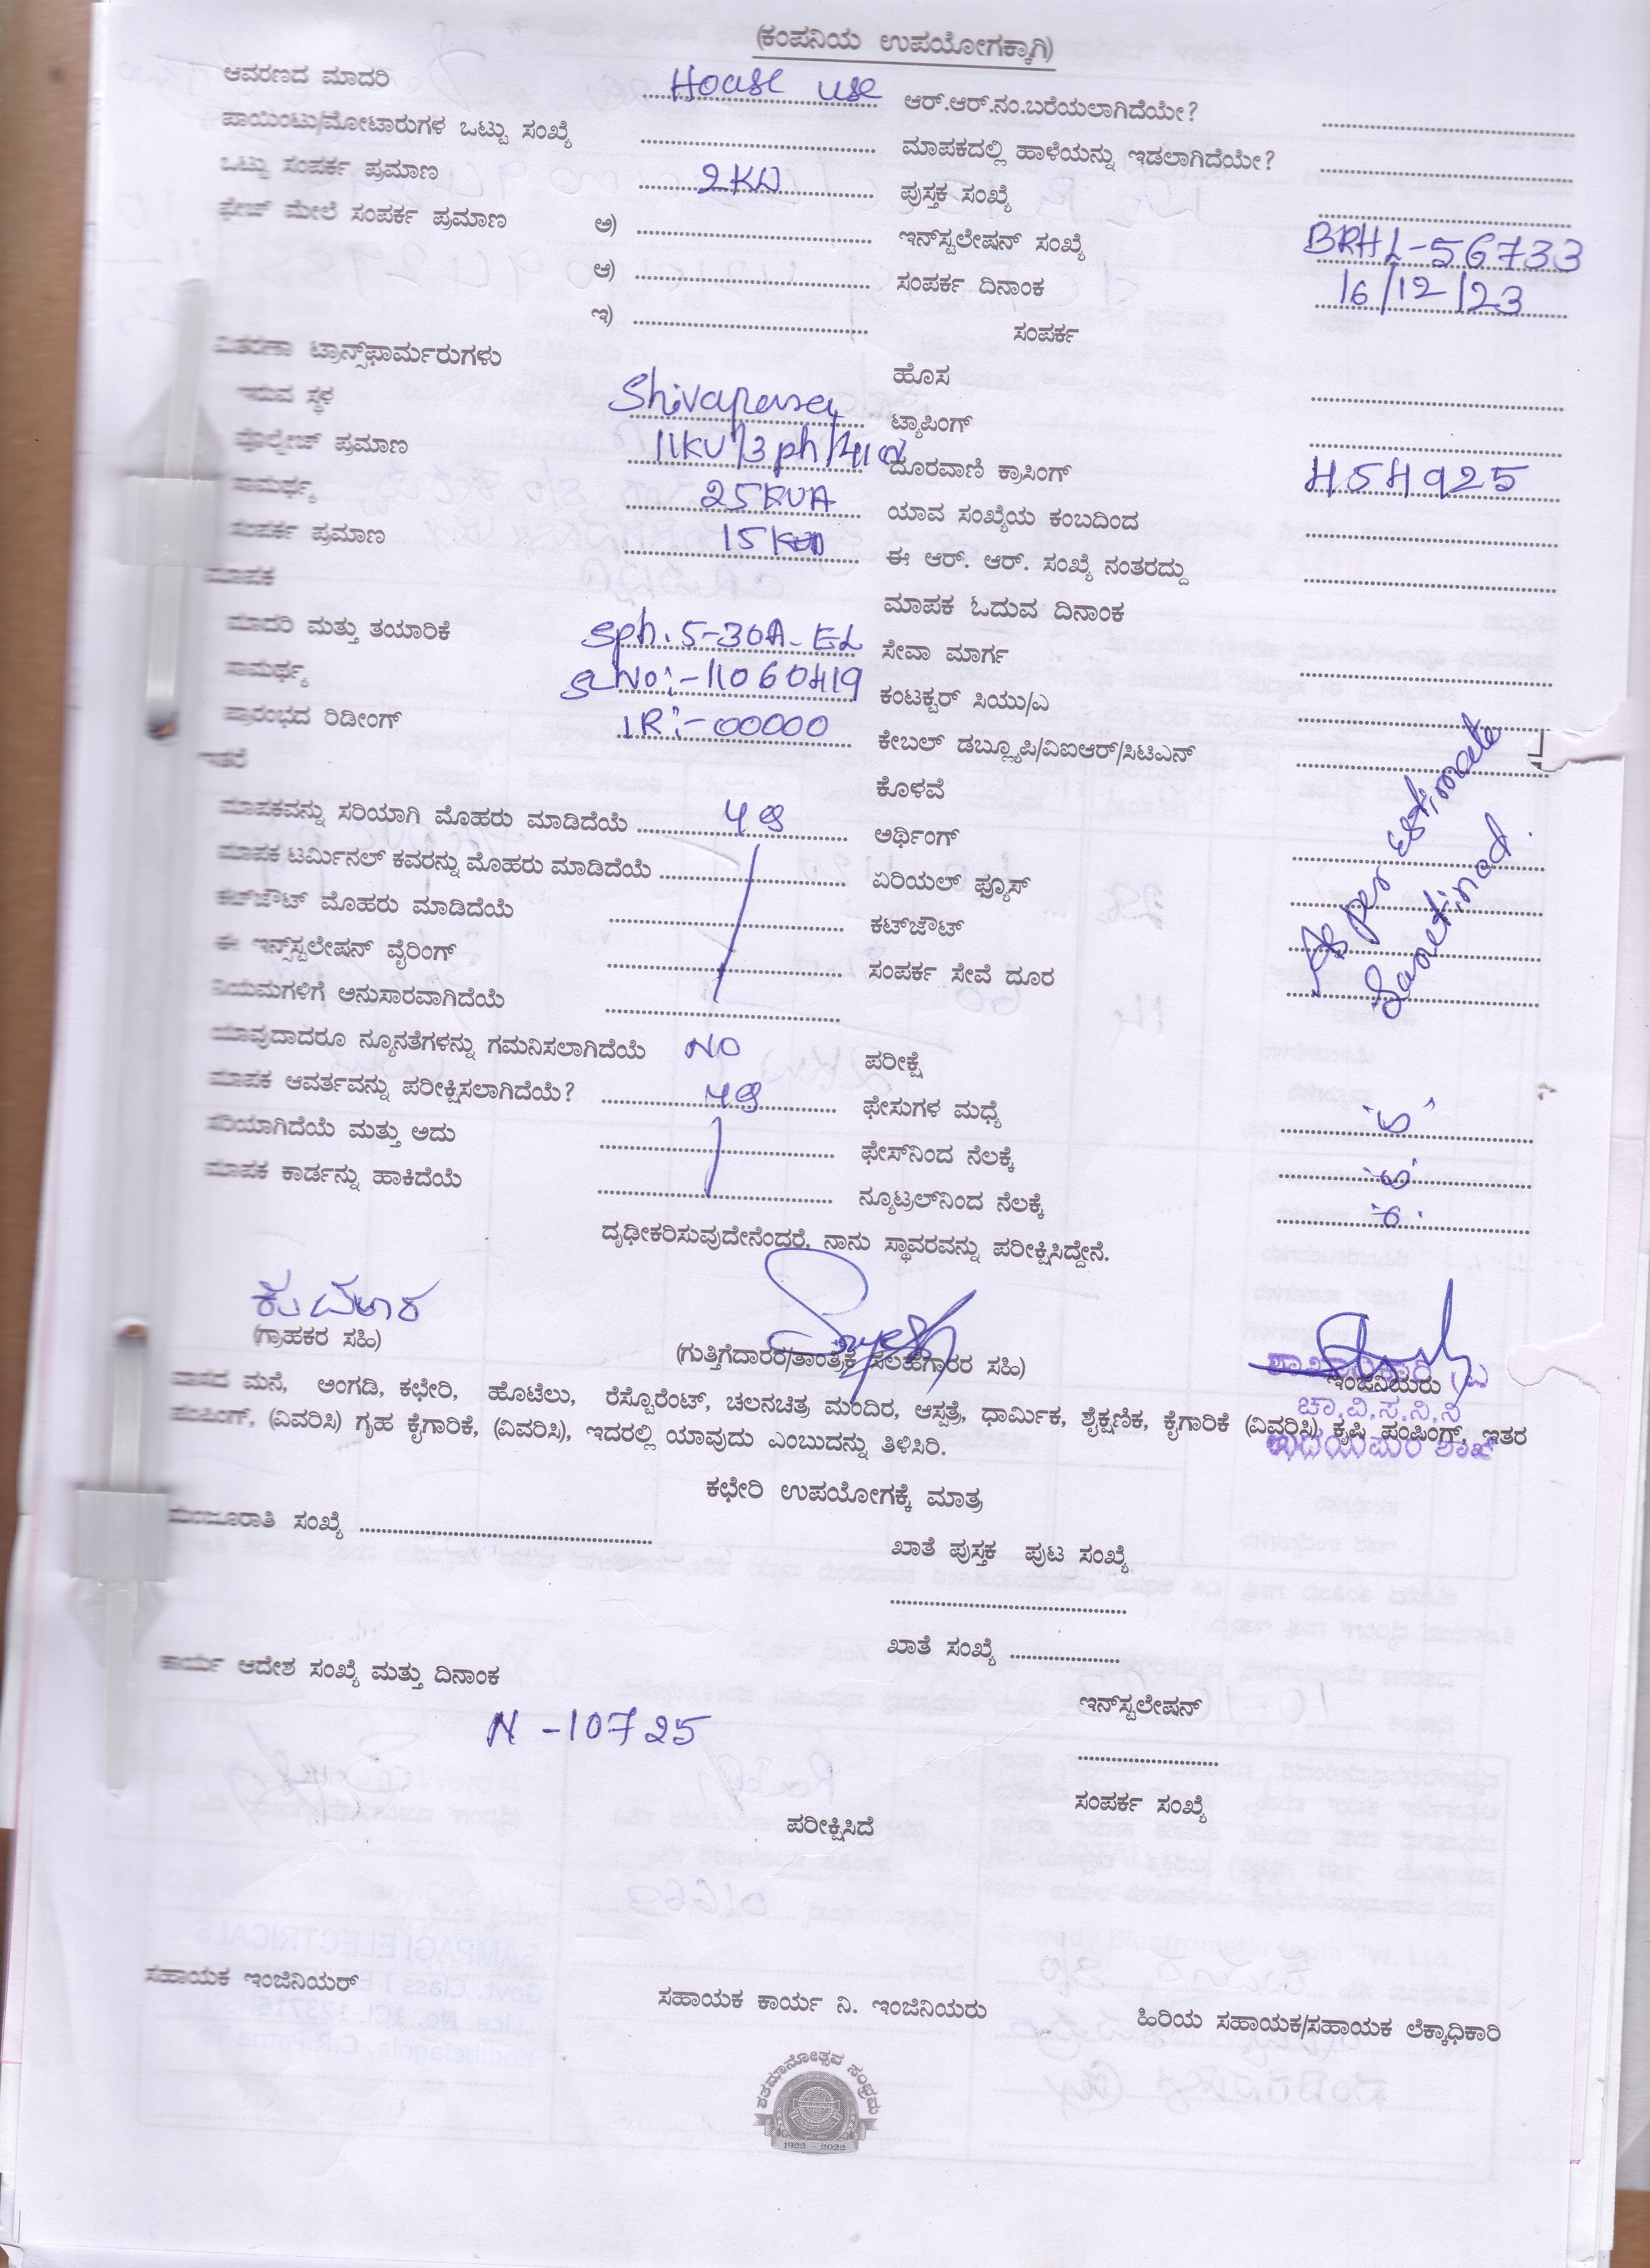 (ಕಂಪನಿಯ ಉಪಯೋಗಕ್ಕಾಗಿ)
ಆವರಣದ ಮಾದರಿ House use ಆರ್.ಆರ್.ನಂ.ಬರೆಯಲಾಗಿದೆಯೇ?
ಪಾಯಿಂಟು/ಮೋಟಾರುಗಳ ಒಟ್ಟು ಸಂಖ್ಯೆ ಮಾಪಕದಲ್ಲಿ ಹಾಳೆಯನ್ನು ಇಡಲಾಗಿದೆಯೇ?
ಒಟ್ಟು ಸಂಪರ್ಕ ಪ್ರಮಾಣ 2KW ಪುಸ್ತಕ ಸಂಖ್ಯೆ
ಫೇಜ್ ಮೇಲೆ ಸಂಪರ್ಕ ಪ್ರಮಾಣ ಅ) ಇನ್‌ಸ್ಟಲೇಷನ್ ಸಂಖ್ಯೆ BRHL-56733
ಆ) ಸಂಪರ್ಕ ದಿನಾಂಕ 16/12/23
ಇ) ಸಂಪರ್ಕ
ವಿತರಣಾ ಟ್ರಾನ್ಸ್‌ಫಾರ್ಮರುಗಳು ಹೊಸ
ಇರುವ ಸ್ಥಳ ಟ್ಯಾಪಿಂಗ್
ವೊಲ್ಟೇಜ್ ಪ್ರಮಾಣ 11KV/3ph/ ದೂರವಾಣಿ ಕ್ರಾಸಿಂಗ್ 454925
ಸಾಮರ್ಥ್ಯ 25KVA ಯಾವ ಸಂಖ್ಯೆಯ ಕಂಬದಿಂದ
ಸಂಪರ್ಕ ಪ್ರಮಾಣ 15 ಈ ಆರ್. ಆರ್. ಸಂಖ್ಯೆ ನಂತರದ್ದು
ಮಾಪಕ ಮಾಪಕ ಓದುವ ದಿನಾಂಕ
ಮಾದರಿ ಮತ್ತು ತಯಾರಿಕೆ Sph. 5-30A-EL ಸೇವಾ ಮಾರ್ಗ
ಸಾಮರ್ಥ್ಯ SlNo:-11060419 ಕಂಟಕ್ಟರ್ ಸಿಯು/ಎ
ಪ್ರಾರಂಭದ ರಿಡೀಂಗ್ IR:-00000 ಕೇಬಲ್ ಡಬ್ಲ್ಯೂಪಿ/ವಿಐಆರ್/ಸಿಟಿಎನ್
ಇತರೆ ಕೊಳವೆ
ಮಾಪಕವನ್ನು ಸರಿಯಾಗಿ ಮೊಹರು ಮಾಡಿದೆಯೆ ಅರ್ಥಿಂಗ್
ಮಾಪಕ ಟರ್ಮಿನಲ್ ಕವರನ್ನು ಮೊಹರು ಮಾಡಿದೆಯೆ ಏರಿಯಲ್ ಫ್ಯೂಸ್
ಕಟ್‌ಔಟ್ ಮೊಹರು ಮಾಡಿದೆಯೆ ಕಟ್‌ಔಟ್
ಈ ಇನ್ಸ್‌ಸ್ಟಲೇಷನ್ ವೈರಿಂಗ್ ಸಂಪರ್ಕ ಸೇವೆ ದೂರ
As per estimate
Sanctined.
ನಿಯಮಗಳಿಗೆ ಅನುಸಾರವಾಗಿದೆಯೆ
ಯಾವುದಾದರೂ ನ್ಯೂನತೆಗಳನ್ನು ಗಮನಿಸಲಾಗಿದೆಯೆ NO ಪರೀಕ್ಷೆ
ಮಾಪಕ ಆವರ್ತವನ್ನು ಪರೀಕ್ಷಿಸಲಾಗಿದೆಯೆ? ಫೇಸುಗಳ ಮಧ್ಯೆ
ಸರಿಯಾಗಿದೆಯೆ ಮತ್ತು ಅದು ಫೇಸ್‌ನಿಂದ ನೆಲಕ್ಕೆ
ಮಾಪಕ ಕಾರ್ಡನ್ನು ಹಾಕಿದೆಯೆ ನ್ಯೂಟ್ರಲ್‌ನಿಂದ ನೆಲಕ್ಕೆ
ದೃಢೀಕರಿಸುವುದೇನೆಂದರೆ, ನಾನು ಸ್ಥಾವರವನ್ನು ಪರೀಕ್ಷಿಸಿದ್ದೇನೆ.
ಕುಮಾರ
(ಗ್ರಾಹಕರ ಸಹಿ) (ಗುತ್ತಿಗೆದಾರರ/ತಾಂತ್ರಿಕ ಸಲಹೆಗಾರರ ಸಹಿ) ಇಂಜಿನಿಯರು
ಶಾಖಾಧಿಕಾರಿ
ಚಾ.ವಿ.ಸ.ನಿ.ನಿ
ವಾಸದ ಮನೆ, ಅಂಗಡಿ, ಕಛೇರಿ, ಹೊಟೆಲು, ರೆಸ್ಟೊರೆಂಟ್, ಚಲನಚಿತ್ರ ಮಂದಿರ, ಆಸ್ಪತ್ರೆ, ಧಾರ್ಮಿಕ, ಶೈಕ್ಷಣಿಕ, ಕೈಗಾರಿಕೆ (ವಿವರಿಸಿ) ಕೃಷಿ ಪಂಪಿಂಗ್, ಇತರ
ಪಂಪಿಂಗ್, (ವಿವರಿಸಿ) ಗೃಹ ಕೈಗಾರಿಕೆ, (ವಿವರಿಸಿ), ಇದರಲ್ಲಿ ಯಾವುದು ಎಂಬುದನ್ನು ತಿಳಿಸಿರಿ.
ಕಛೇರಿ ಉಪಯೋಗಕ್ಕೆ ಮಾತ್ರ
ಮಂಜೂರಾತಿ ಸಂಖ್ಯೆ ಖಾತೆ ಪುಸ್ತಕ ಪುಟ ಸಂಖ್ಯೆ
ಖಾತೆ ಸಂಖ್ಯೆ
ಕಾರ್ಯ ಆದೇಶ ಸಂಖ್ಯೆ ಮತ್ತು ದಿನಾಂಕ
ಇನ್‌ಸ್ಟಲೇಷನ್
N -10725
ಸಂಪರ್ಕ ಸಂಖ್ಯೆ
ಪರೀಕ್ಷಿಸಿದೆ
ಸಹಾಯಕ ಇಂಜಿನಿಯರ್ ಸಹಾಯಕ ಕಾರ್ಯ ನಿ. ಇಂಜಿನಿಯರು ಹಿರಿಯ ಸಹಾಯಕ/ಸಹಾಯಕ ಲೆಕ್ಕಾಧಿಕಾರಿ
ಶತಮಾನೋತ್ಸವ ಸಂಭ್ರಮ
1922 - 2022